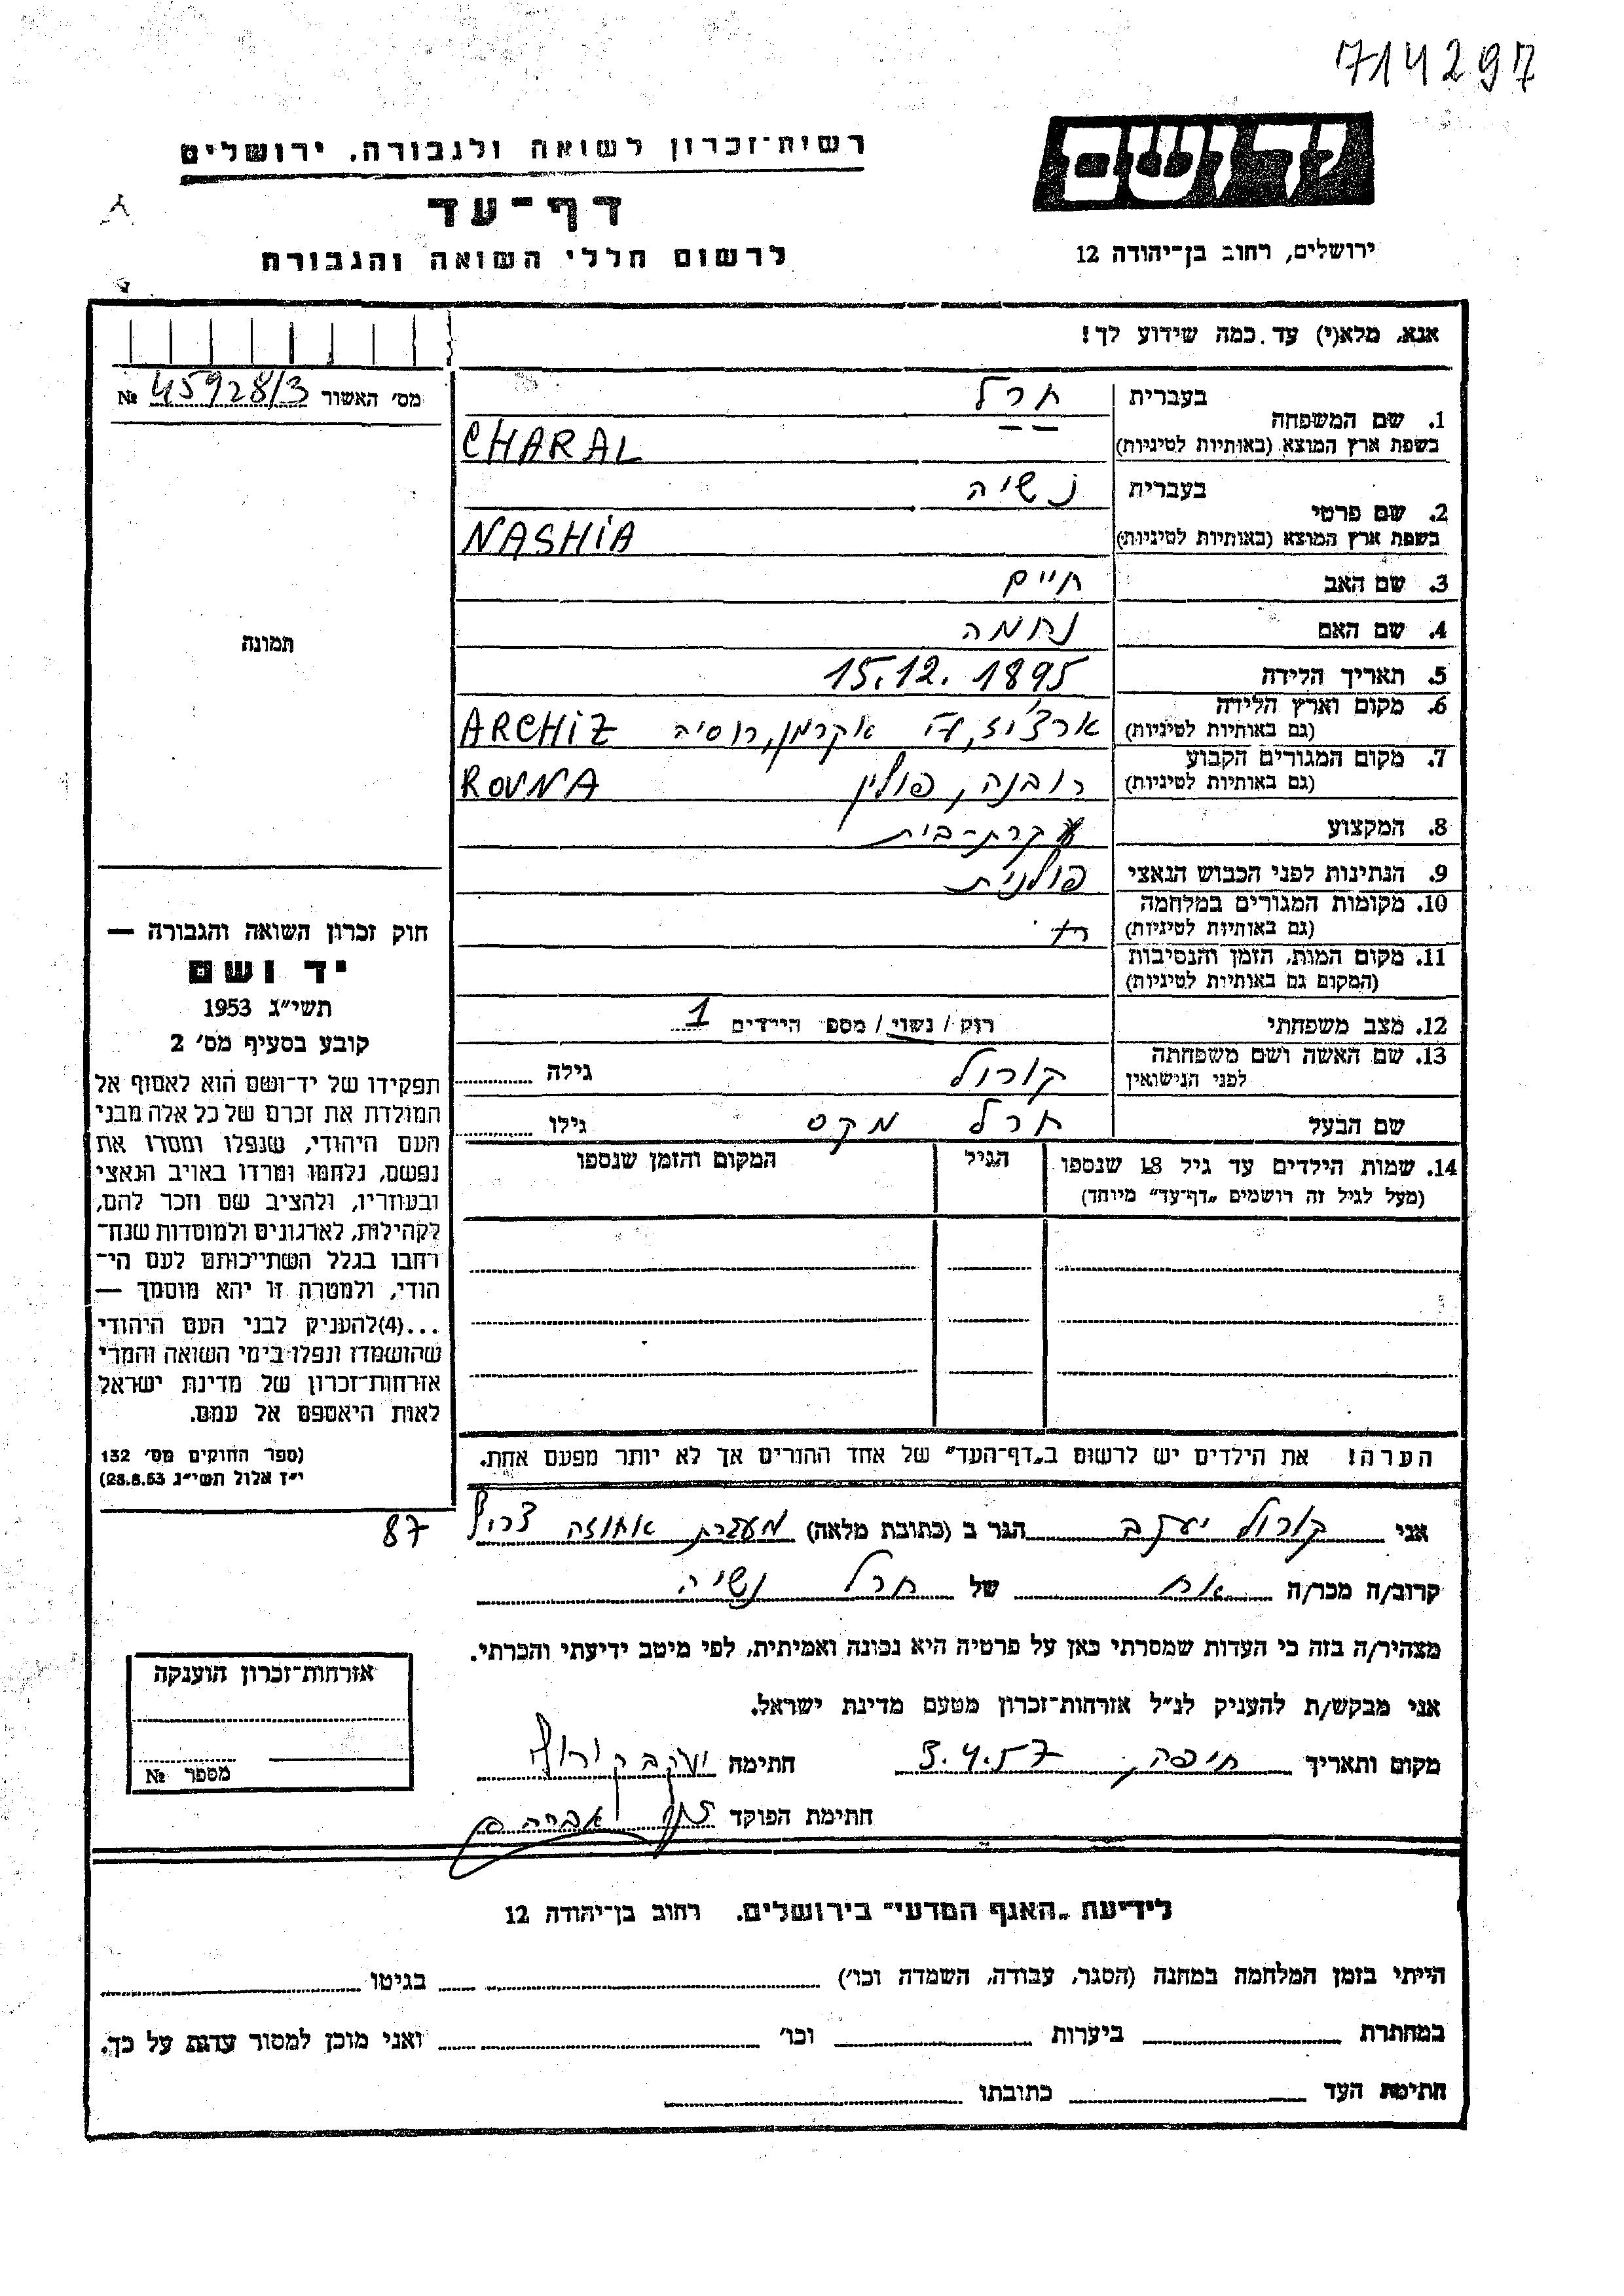 714297
יד ושם
רשות־זכרון לשואה ולגבורה. ירושלים
דף־עד
לרשום חללי השואה והגבורה
ירושלים, רחוב בן־יהודה 12
אנא, מלא(י) עד כמה שידוע לך!
מס׳ האשור 45928/3 №
1. שם המשפחה
בעברית חרל
בשפת ארץ המוצא (באותיות לטיניות) CHARAL
2. שם פרטי
בעברית נשיה
בשפת ארץ המוצא (באותיות לטיניות) NASHIA
3. שם האב חיים
4. שם האם נחמה
5. תאריך הלידה 15.12.1895
6. מקום וארץ הלידה
(גם באותיות לטיניות) ארצ'יז, אקרמן, רוסיה ARCHIZ
7. מקום המגורים הקבוע
(גם באותיות לטיניות) רובנה, פולין ROVNA
8. המקצוע עקרת-בית
9. הנתינות לפני הכבוש הנאצי פולנית
10. מקומות המגורים במלחמה
(גם באותיות לטיניות)
11. מקום המות, הזמן והנסיבות
(המקום גם באותיות לטיניות)
12. מצב משפחתי רווק / נשוי / מספ הילדים 1
13. שם האשה ושם משפחתה
לפני הנישואין קורול גילה
שם הבעל חרל מקס גילו
14. שמות הילדים עד גיל 18 שנספו הגיל המקום והזמן שנספו
(מעל לגיל זה רושמים „דף־עד" מיוחד)
הערה! את הילדים יש לרשום ב„דף־העד" של אחד ההורים אך לא יותר מפעם אחת.
תמונה
חוק זכרון השואה והגבורה —
יד ושם
תשי״ג 1953
קובע בסעיף מס׳ 2
תפקידו של יד־ושם הוא לאסוף אל
המולדת את זכרם של כל אלה מבני
העם היהודי, שנפלו ומסרו את
נפשם, נלחמו ומרדו באויב הנאצי
ובעוזריו, ולהציב שם וזכר להם,
לקהילות, לארגונים ולמוסדות שנח־
רבו בגלל השתייכותם לעם הי־
הודי, ולמטרה זו יהא מוסמך —
...(4)להעניק לבני העם היהודי
שהושמדו ונפלו בימי השואה והמרי
אזרחות־זכרון של מדינת ישראל
לאות היאספם אל עמם.
(ספר החוקים מס׳ 132
י״ז אלול תשי״ג 28.8.53)
אני קורול יעקב הגר ב (כתובת מלאה) מעברת אחוזה צריף 87
קרוב/ה מכר/ה אח של חרל נשיה
מצהיר/ה בזה כי העדות שמסרתי כאן על פרטיה היא נכונה ואמיתית, לפי מיטב ידיעתי והכרתי.
אני מבקש/ת להעניק לנ״ל אזרחות־זכרון מטעם מדינת ישראל.
מקום ותאריך חיפה, 3.4.57 חתימה יעקב קורול
חתימת הפוקד
אזרחות־זכרון הוענקה
מספר №
לידיעת „האגף המדעי" בירושלים. רחוב בן־יהודה 12
הייתי בזמן המלחמה במחנה (הסגר, עבודה, השמדה וכו׳) בגיטו
במחתרת ביערות וכו׳ ואני מוכן למסור עדות על כך.
חתימת העד כתובתו